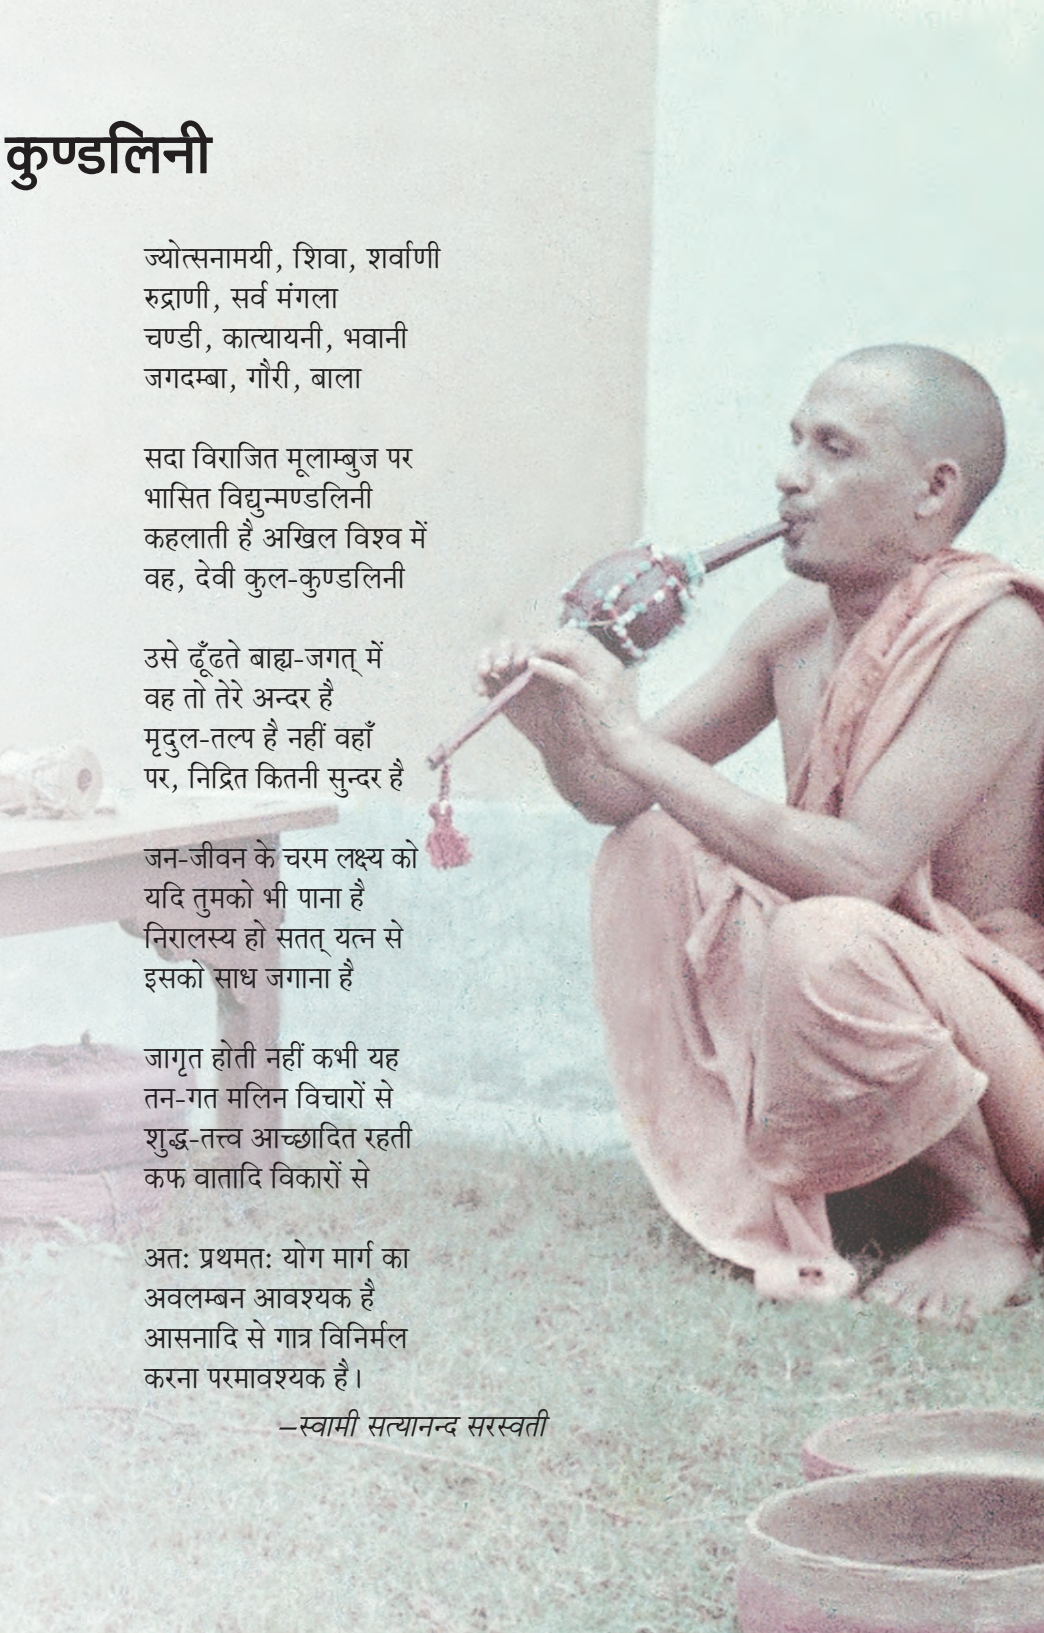 कुण्डलिनी
ज्योत्सनामयी, शिवा, शर्वाणी
रुद्राणी, सर्व मंगला
चण्डी, कात्यायनी, भवानी
जगदम्बा, गौरी, बाला
सदा विराजित मूलाम्बुज पर
भासित विद्युन्मण्डलिनी
कहलाती है अखिल विश्व में
वह, देवी कुल-कुण्डलिनी
उसे ढूँढते बाह्य-जगत् में
वह तो तेरे अन्दर है
मृदुल-तल्प है नहीं वहाँ
पर, निद्रित कितनी सुन्दर है
जन-जीवन के चरम लक्ष्य को
यदि तुमको भी पाना है
निरालस्य हो सतत् यत्न से
इसको साध जगाना है
जागृत होती नहीं कभी यह
तन-गत मलिन विचारों से
शुद्ध-तत्त्व आच्छादित रहती
कफ वातादि विकारों से
अतः प्रथमतः योग मार्ग का
अवलम्बन आवश्यक है
आसनादि से गात्र विनिर्मल
करना परमावश्यक है।
–स्वामी सत्यानन्द सरस्वती